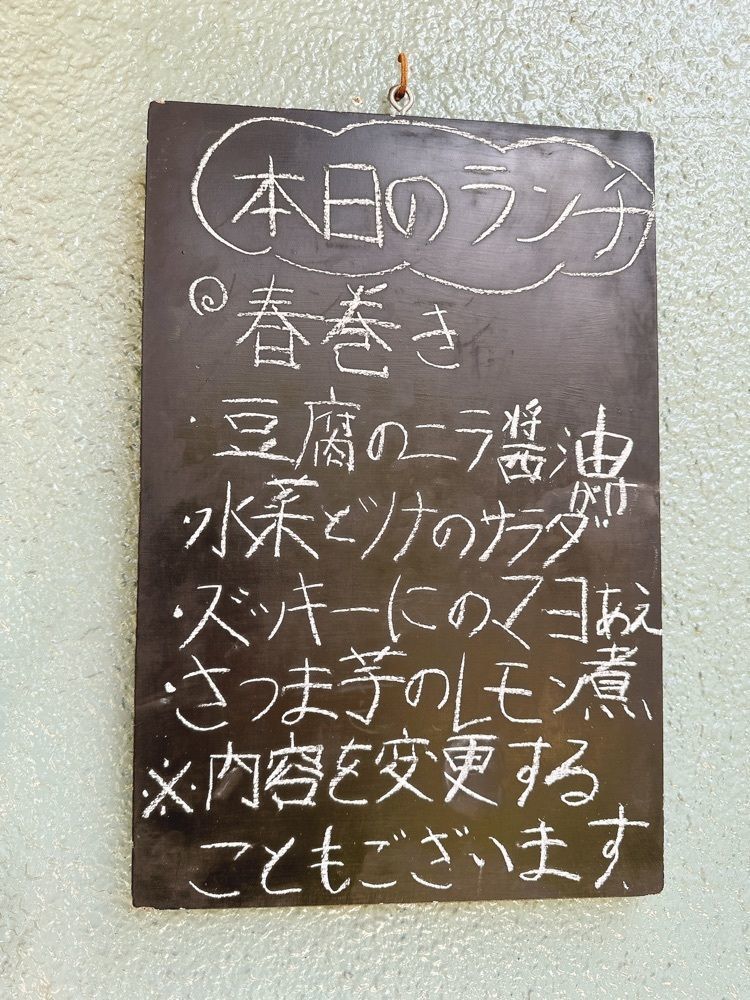 本日のランチ
◎春巻き
・豆腐のニラ醤油がけ
・水菜とツナのサラダ
・ズッキーにのマヨあえ
・さつま芋のレモン煮
※内容を変更する
こともございます。